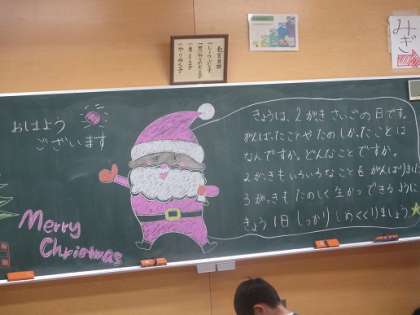 おはよう
ございます
Merry
Christmas
きょうは、2がきさいごの日です。
がんばったことやたのしかったことは
なんですか。どんなことですか。
2がっきもいろいろなことをがんばりました
3がっきもたのしく生かつできるように
きょう1日しっかりしめくくりましょう
みぎ